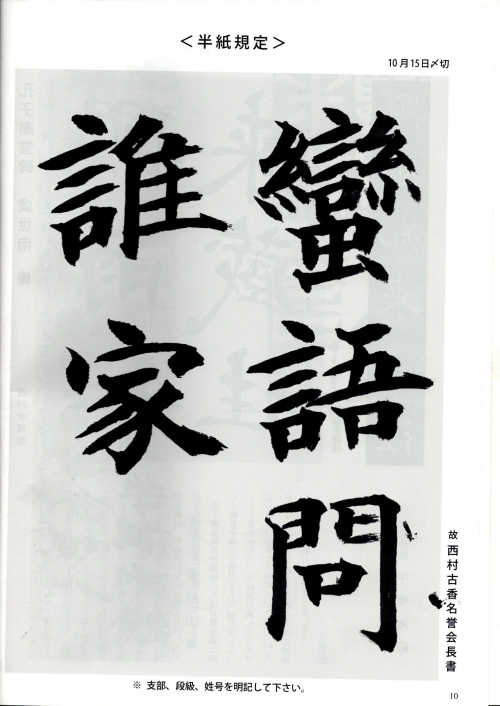 <半紙規定>
10月15日〆切
蠻語問
誰家
故 西村古香名誉会長書
※ 支部、段級、姓号を明記して下さい。
10